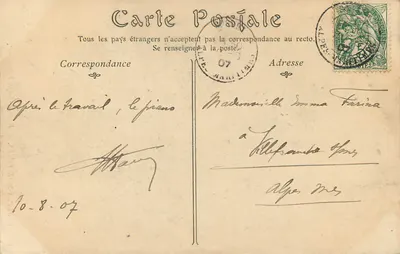 Carte Postale
Tous les pays étrangers n'acceptent pas la correspondance au recto.
Se renseigner à la poste.
Correspondance
Adresse
07
ALPES-MARITIMES
Après le travail, le piano
10-8-07
Mademoiselle Emma Farina
à
Villefranche s/mer
Alpes Mmes